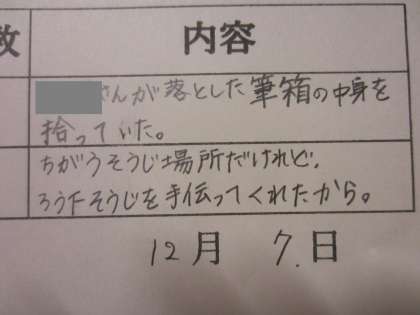 数 内容
さんが落とした筆箱の中身を
拾っていた。
ちがうそうじ場所だけれど、
ろう下そうじを手伝ってくれたから。
12月 7.日